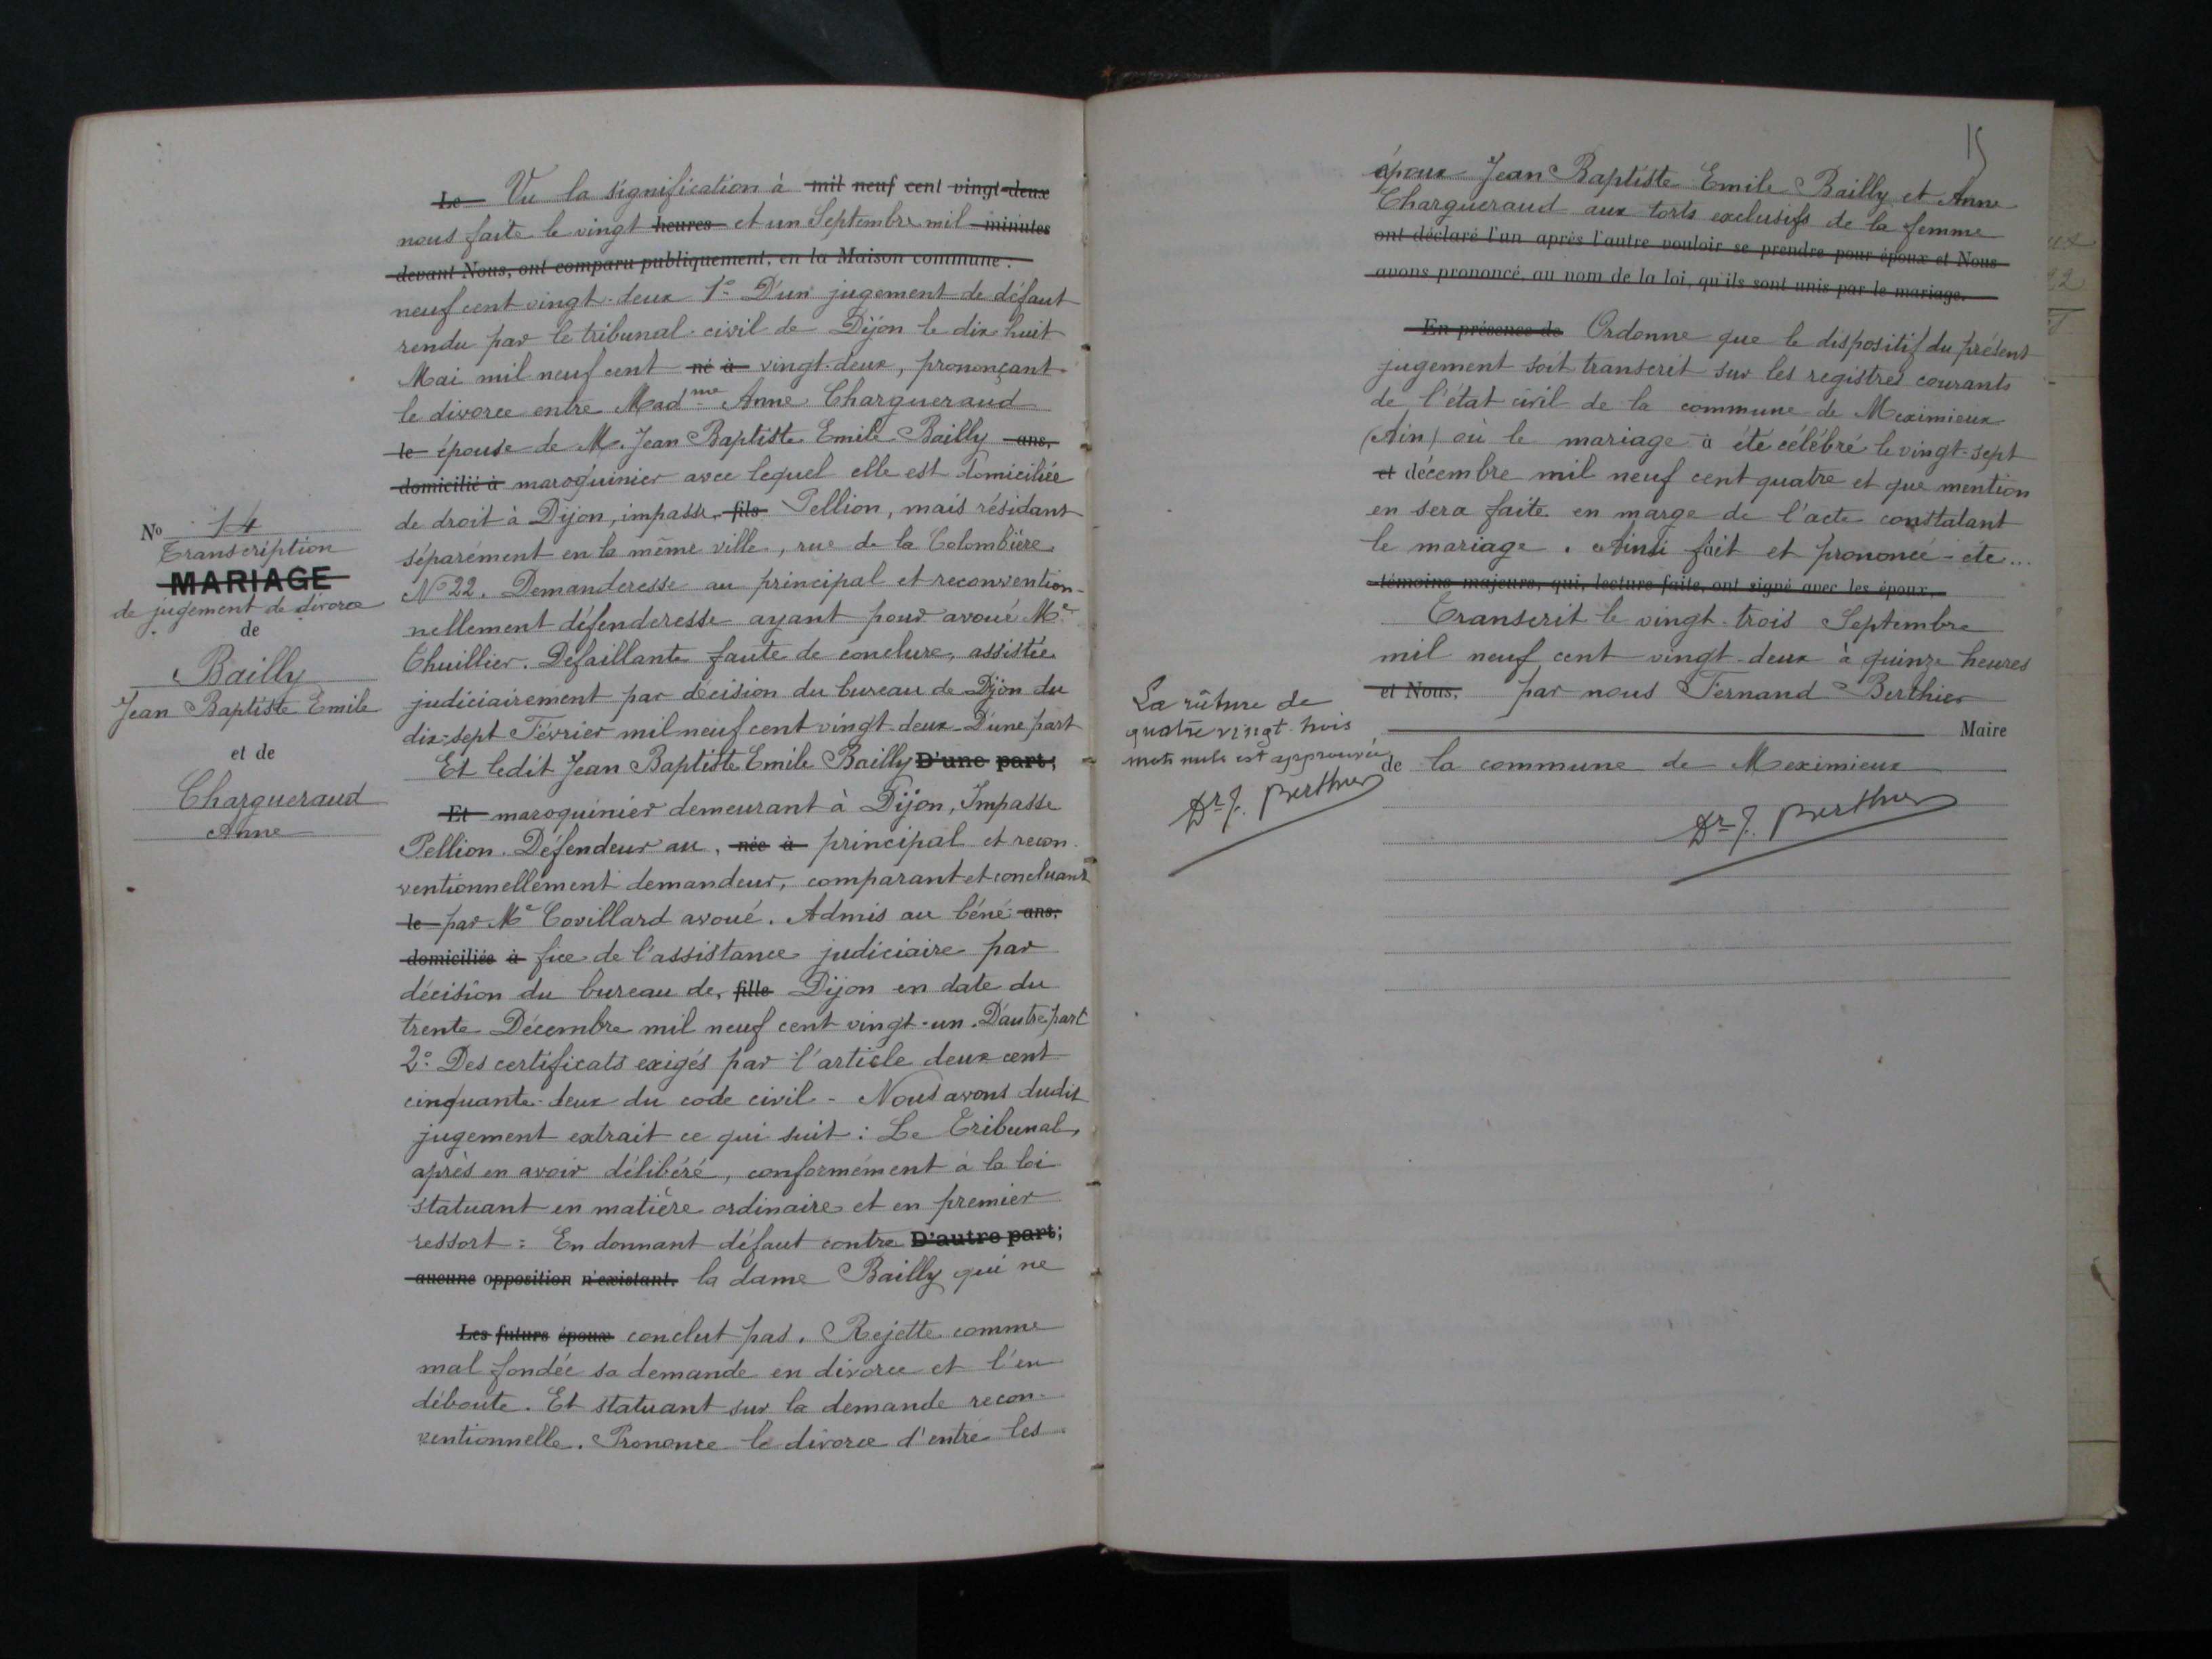 No 14
Transcription
MARIAGE
de jugement de divorce
de
Bailly
Jean Baptiste Emile
et de
Chargueraud
Anne
Le Vu la signification à mil neuf cent vingt-deux
nous faite le vingt heures et un Septembre mil minutes
devant Nous, ont comparu publiquement, en la Maison commune :
neuf cent vingt-deux 1º D'un jugement de défaut
rendu par le tribunal civil de Dijon le dix huit
Mai mil neuf cent né à vingt-deux, prononçant
le divorce entre Madme Anne Chargueraud
le épouse de M. Jean Baptiste Emile Bailly ans,
domicilié à maroquinier avec lequel elle est domiciliée
de droit à Dijon, impasse fils Pellion, mais résidant
séparément en la même ville, rue de la Colombière
Nº 22. Demanderesse au principal et reconvention-
nellement défenderesse ayant pour avoué Me
Thuillier. Défaillante faute de conclure, assistée
judiciairement par décision du bureau de Dijon du
dix-sept Février mil neuf cent vingt-deux. D'une part
Et ledit Jean Baptiste Emile Bailly D'une part;
Et maroquinier demeurant à Dijon, Impasse
Pellion. Défendeur au, née à principal et recon-
ventionnellement demandeur, comparant et concluant
le par Me Covillard avoué. Admis au béné- ans,
domiciliée à fice de l'assistance judiciaire par
décision du bureau de, fille Dijon en date du
trente Décembre mil neuf cent vingt-un. D'autre part
2º Des certificats exigés par l'article deux cent
cinquante-deux du code civil - Nous avons dudit
jugement extrait ce qui suit : Le Tribunal,
après en avoir délibéré, conformément à la loi
statuant en matière ordinaire et en premier
ressort : En donnant défaut contre D'autre part;
aucune opposition n'existant. la dame Bailly qui ne
Les futurs époux conclut pas. Rejette comme
mal fondée sa demande en divorce et l'en
déboute. Et statuant sur la demande recon-
ventionnelle. Prononce le divorce d'entre les
15
époux Jean Baptiste Emile Bailly et Anne
Chargueraud aux torts exclusifs de la femme
ont déclaré l'un après l'autre vouloir se prendre pour époux et Nous
avons prononcé, au nom de la loi, qu'ils sont unis par le mariage.
En présence de Ordonne que le dispositif du présent
jugement soit transcrit sur les registres courants
de l'état civil de la commune de Meximieux
(Ain) où le mariage a été célébré le vingt-sept
et décembre mil neuf cent quatre et que mention
en sera faite en marge de l'acte constatant
le mariage. Ainsi fait et prononcé - etc...
témoins majeurs, qui, lecture faite, ont signé avec les époux,
Transcrit le vingt-trois Septembre
mil neuf cent vingt-deux à quinze heures
et Nous, par nous Fernand Berthier
Maire
de la commune de Meximieux
Dr F. Berthier
La rature de
quatre vingt trois
mots nuls est approuvée
Dr F. Berthier